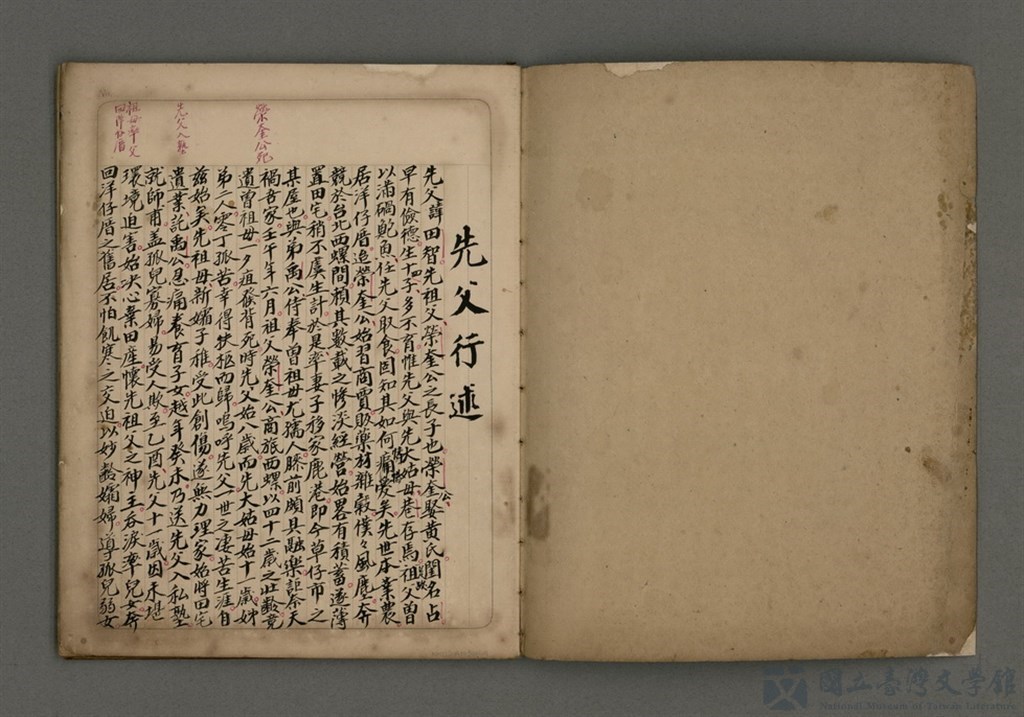 先父行述
先父諱田智先祖父榮奎公之長子也榮奎公娶黃氏閨名占
早有儉德生十四子多不育惟先父與先大姑母巷存焉祖父曾
以滿碢鮀魚任先父取食固知其如何痛愛矣先世本業農
居洋仔厝迨榮奎公始習商賈販藥材雜穀僕々風塵奔
競於台北西螺間賴其數載之慘淡經營始畧有積蓄遂薄
置田宅稍不虞生計於是率妻子移家鹿巷即今草仔市之
其屋也與弟禹公侍奉曾祖母尤孺人膝前頗具融樂詎奈天
禍吾家壬午年六月祖父榮奎公商旅西螺以四十二歲之壯齡竟
遺曾祖母夕疽發背死時先父始八歲而先大姑母始十一歲姊
弟二人零丁孤苦幸得扶柩而歸嗚呼先父一世之凄苦生涯自
茲始矣先祖母新孀子稚受此創傷遂無力理家始將田宅
遺業託禹公忍痛養育子女越年癸未乃送先父入私塾
就師甫盖孤兒寡婦易受人欺至乙酉先父十一歲因未堪
環境迫害始決心棄田產懷先祖父之神主吞淚率兒女奔
回洋仔厝之舊居不怕飢寒之交迫以妙齡孀婦導孤兒弱女
榮奎公死
先父入塾
祖母率父
回洋仔厝
國立臺灣文學館
National Museum of Taiwan Literature